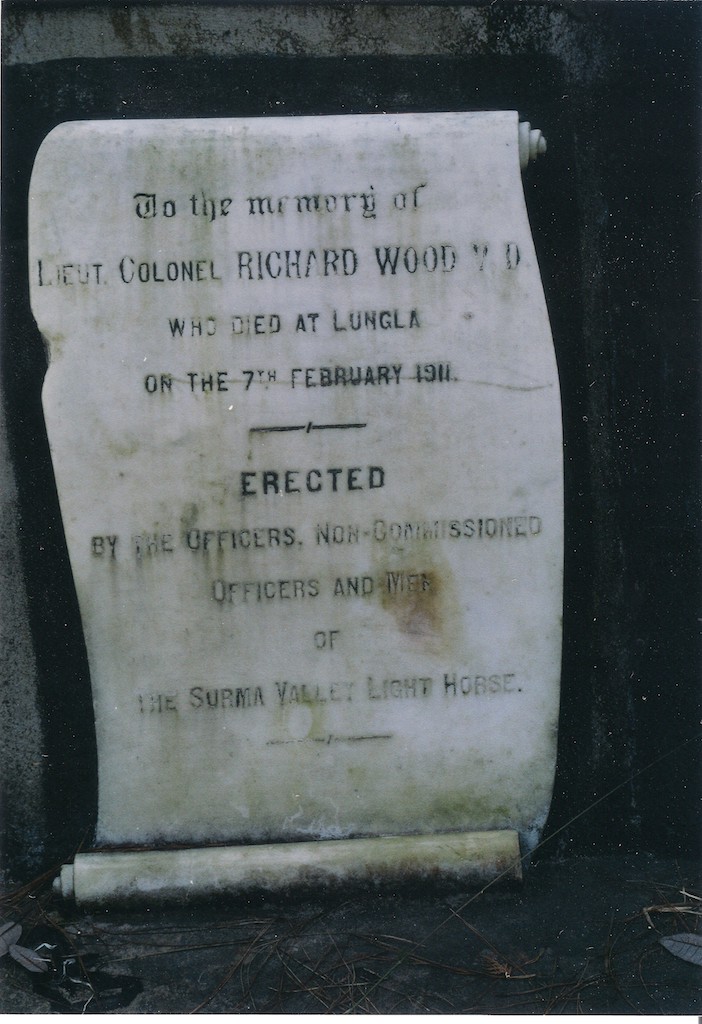 To the memory of
LIEUT. COLONEL RICHARD WOOD V.D.
WHO DIED AT LUNGLA
ON THE 7TH FEBRUARY 1911.
ERECTED
BY THE OFFICERS, NON-COMMISSIONED
OFFICERS AND MEN
OF
THE SURMA VALLEY LIGHT HORSE.